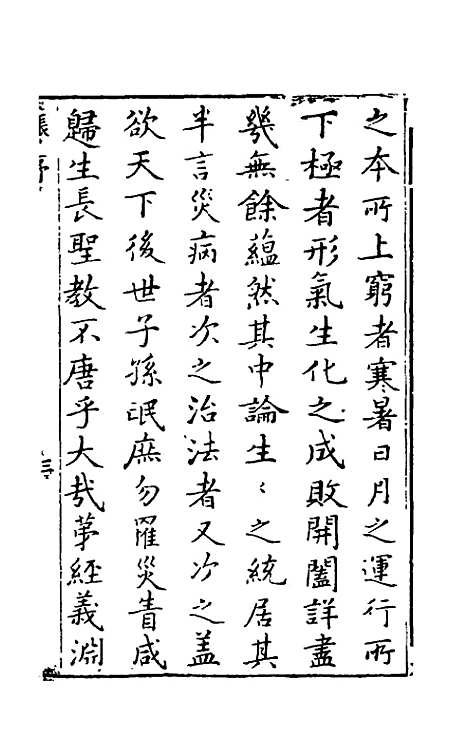 之本所上窮者寒暑日月之運行所
下極者形氣生化之成敗開闔詳盡
幾無餘蘊然其中論生〻之統居其
半言災病者次之治法者又次之盖
欲天下後世子孫氓庶勿罹災眚咸
歸生長聖教不唐乎大㢤苐經義淵
張序
三